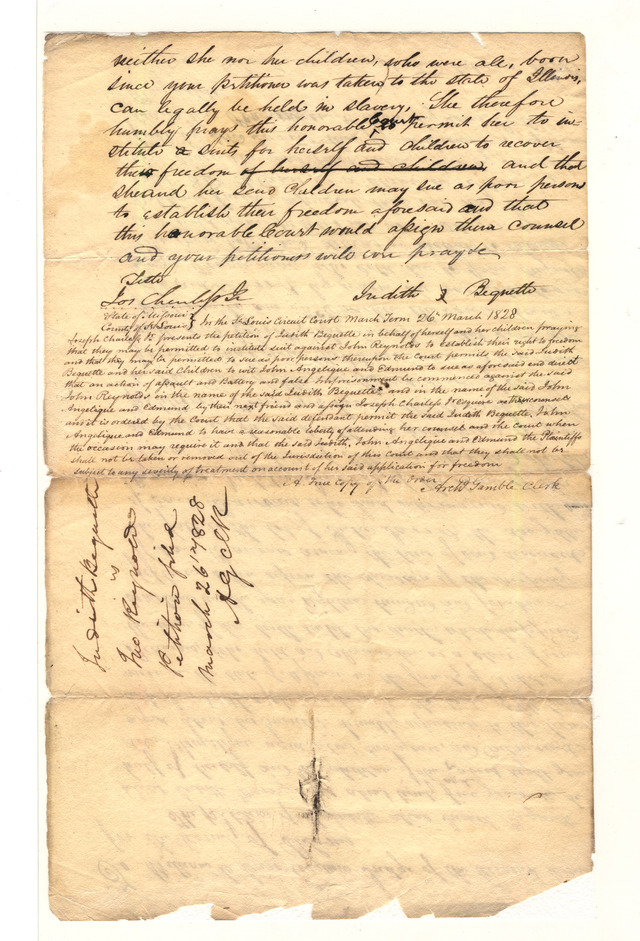 neither she nor her children, who were all, born
since your petitioner was taken to the state of Illinois,
can legally be held in slavery. She therefore
humbly prays this honorable Court to permit her to in-
stitute a suits for herself and children to recover
their freedom of herself and children, and that
she and her said children may sue as poor persons
to establish their freedom aforesaid and that
this honorable Court would assign them counsel
and your petitioners will ever pray &c
Teste
Jos Charless Jr Judith Bequette
State of Missouri
County of St Louis } In the St Louis Circuit Court March Term 26th March 1828
Joseph Charless Jr presents the petition of Judith Bequette in behalf of herself and her children praying
that they may be permitted to institute suit against John Reynolds to establish their right to freedom
and that they may be permitted to sue as poor persons thereupon the Court permits the said Judith
Bequette and her said Children to wit John Angelique and Edmund to sue as aforesaid and direct
that an action of assault and Battery and false Imprisonment be commenced against the said
John Reynolds in the name of the said Judith Bequette and in the name of the said John
Angelique and Edmund by their next friend and assign Joseph Charless Jr Esquire as their counsel
and it is ordered by the Court that the said defendant permit the said Judith Bequette, John
Angelique and Edmund to have a reasonable liberty of attending her counsel and the Court when
the occasion may require it and that the said Judith, John Angelique and Edmund the Plaintiffs
shall not be taken or removed out of the Jurisdiction of this Court and that they shall not be
subject to any severity of treatment on account of her said application for freedom
A True Copy of the Order Archd Gamble Clerk
Judith Bequette
vs
Jno Reynolds
Petition filed
March 26th 1828
A G Clk